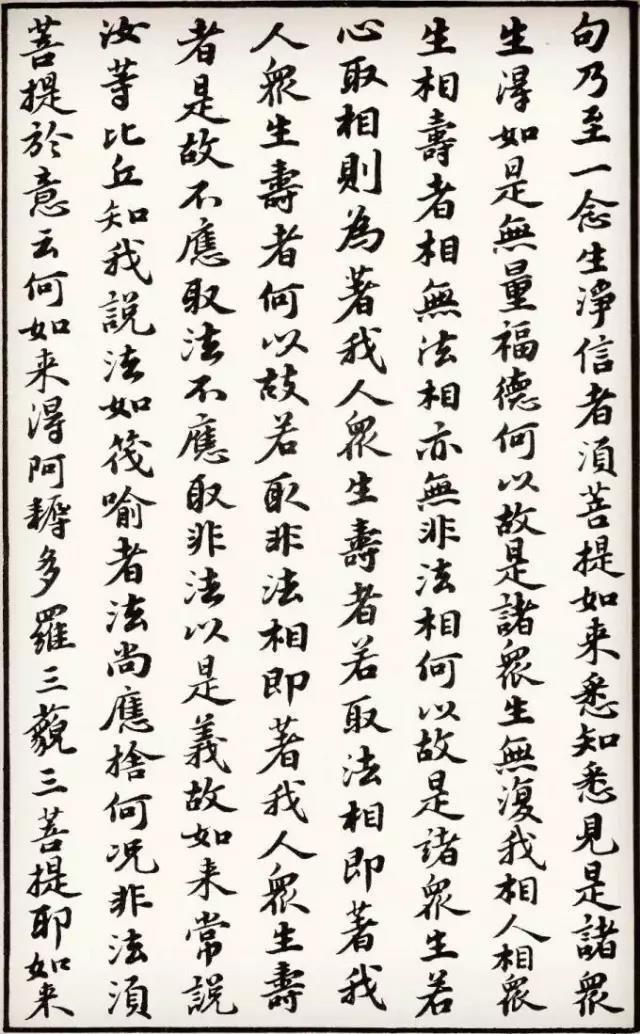 句乃至一念生淨信者須菩提如来悉知悉見是諸衆
生得如是無量福德何以故是諸衆生無復我相人相衆
生相壽者相無法相亦無非法相何以故是諸衆生若
心取相則為著我人衆生壽者若取法相即著我
人衆生壽者何以故若取非法相即著我人衆生壽
者是故不應取法不應取非法以是義故如来常說
汝等比丘知我說法如筏喻者法尚應捨何况非法須
菩提於意云何如来得阿耨多羅三藐三菩提耶如来